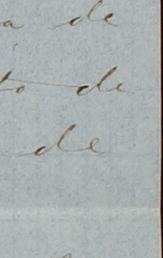 a de
to de
de